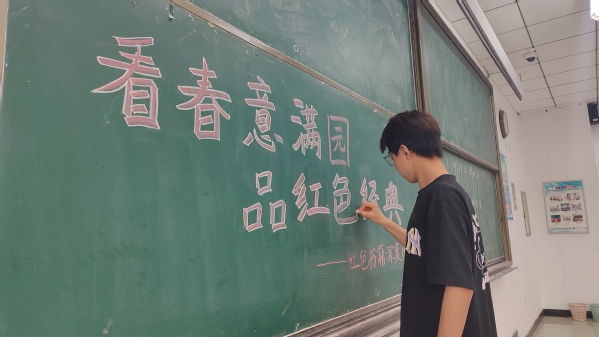 看春意满园
品红色经典
——红色书籍